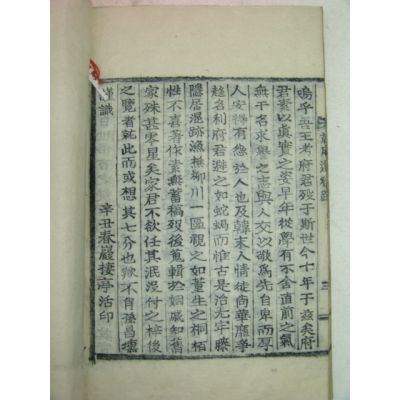 嗚乎吾王考府君歿于斯世今十年于玆矣府
君素以眞實之姿早年從學有不舍直前之氣
無干名求譽之志與人交以敬爲先自卑而尊
人安得有怨於人也及韓末人情徒尙華靡爭
趁名利府君避之如蛇蝎而惟古是治光宇
隱居遯跡漁樵柳川一區視之如董生之桐栢
性不喜等作素無蓄稿歿後蒐輯於姻戚知舊
家殊甚零星矣家君不欲任其泯沒付之梓後
之覽者就此而或想其七分也歟不肖孫昌壎
謹識
辛丑春巖棲亭活印